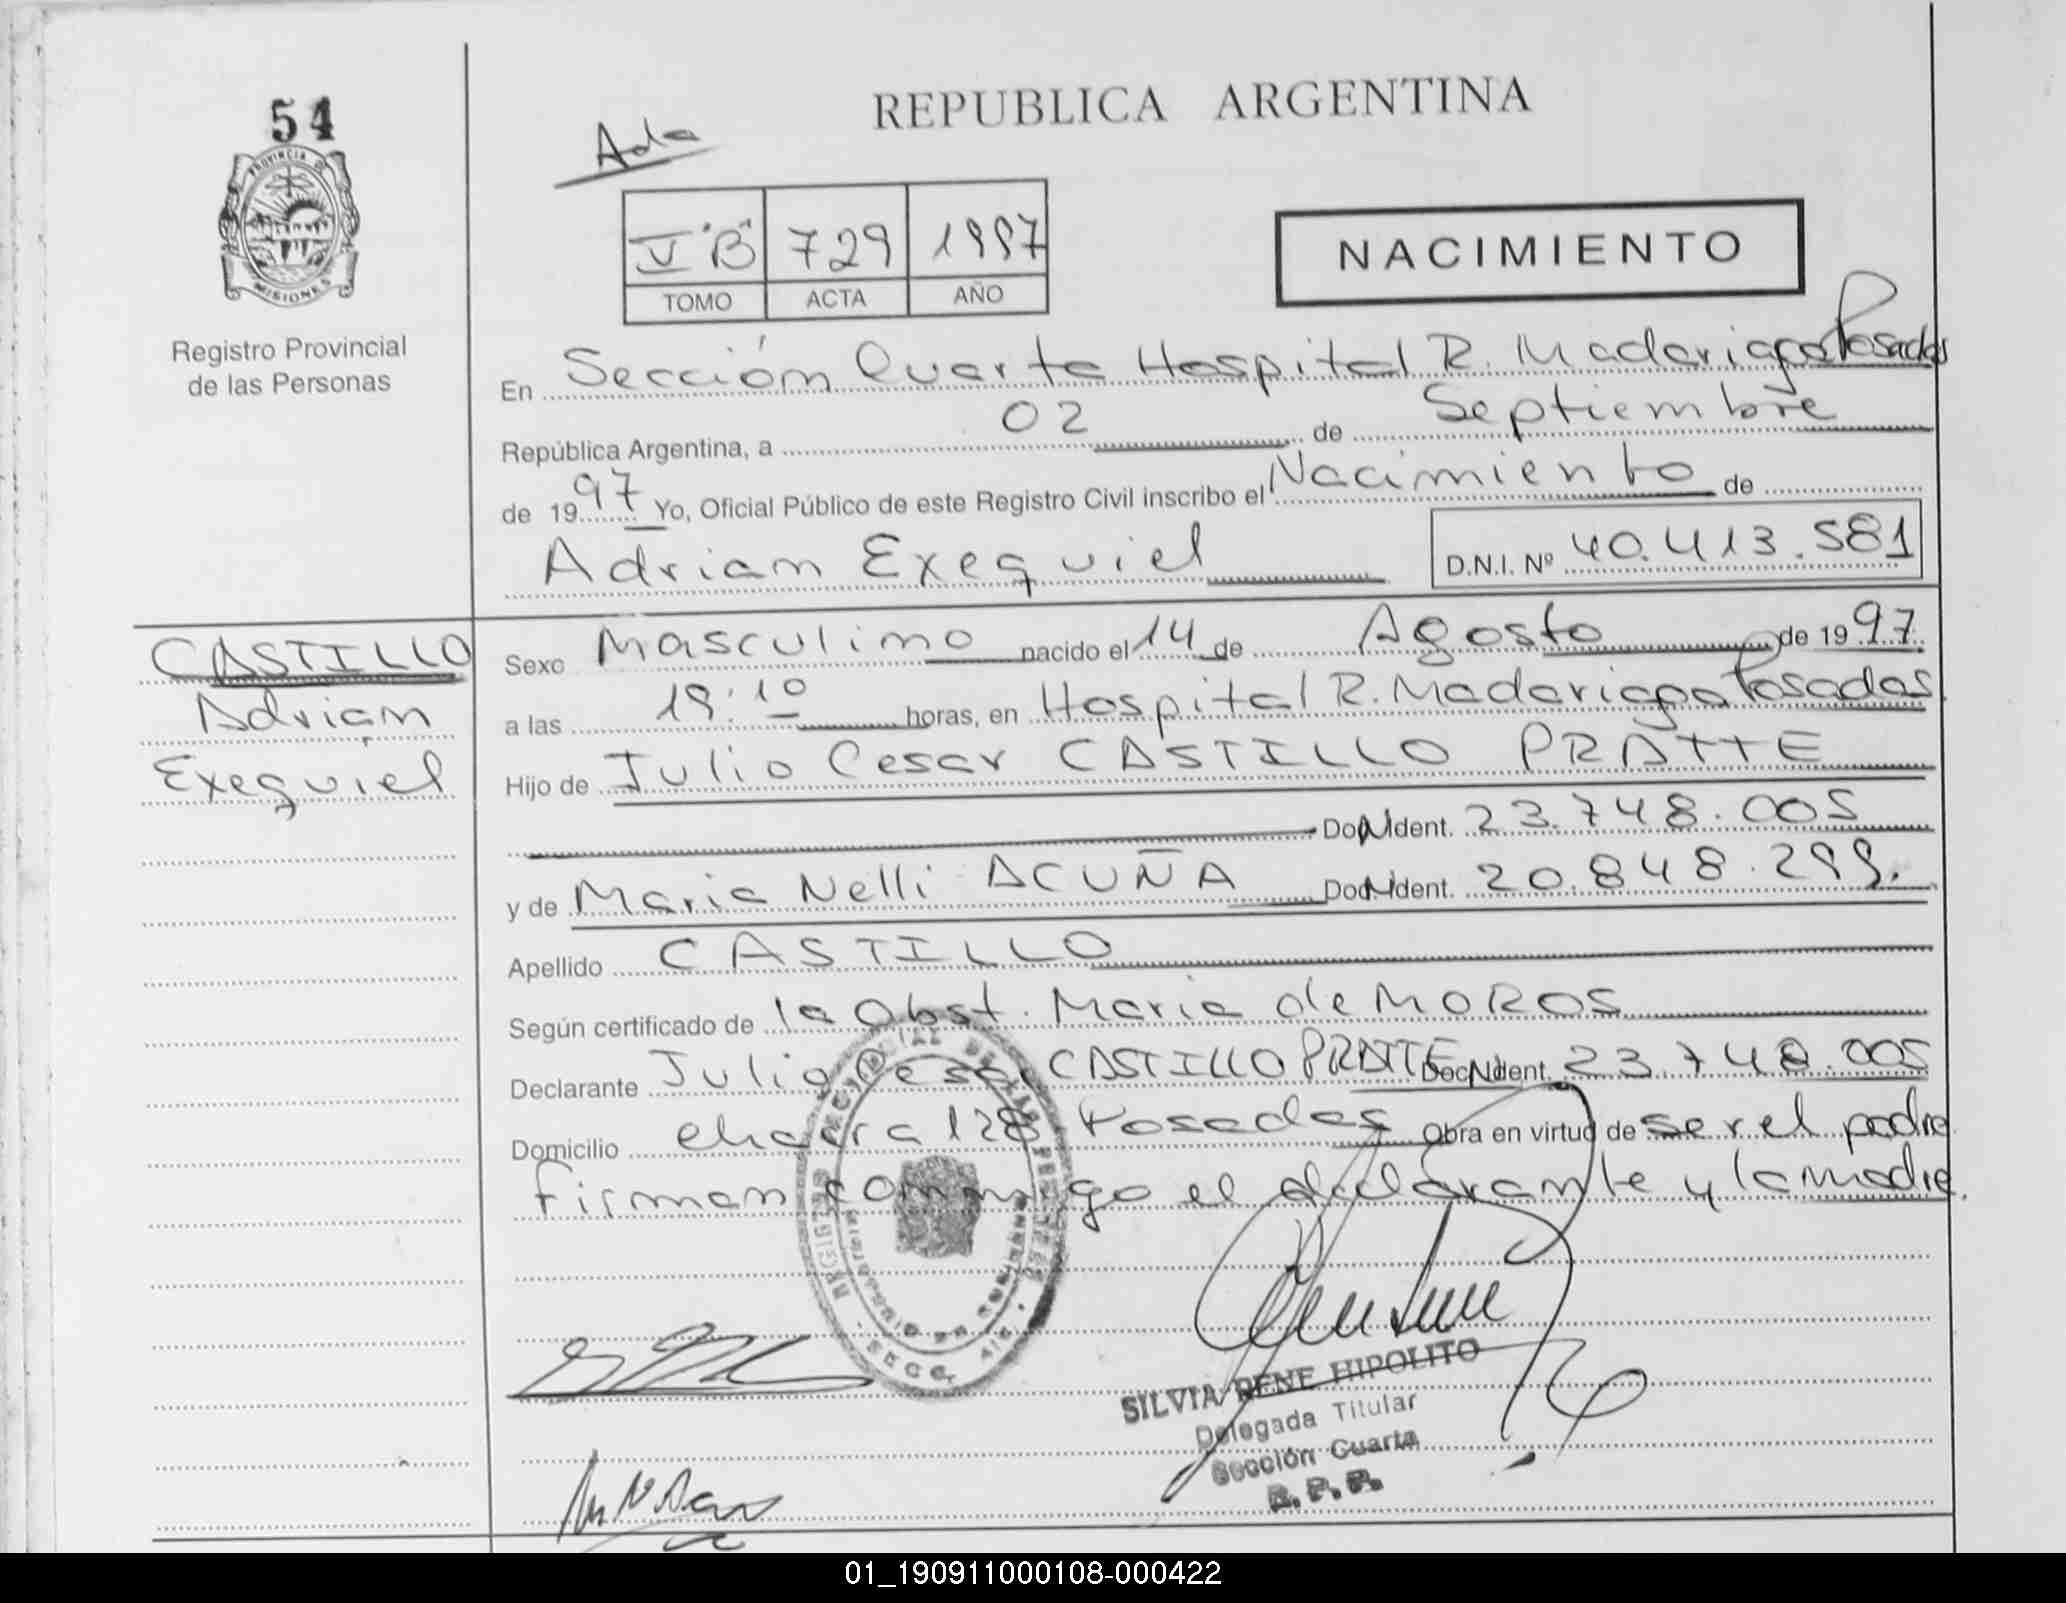 54
PROVINCIA DE
MISIONES
Registro Provincial
de las Personas
REPUBLICA ARGENTINA
Ada
V "B" 729 1997
TOMO ACTA AÑO
NACIMIENTO
En Sección Cuarta Hospital R. Madariaga Posadas
República Argentina, a 02 de Septiembre
de 1997 Yo, Oficial Público de este Registro Civil inscribo el Nacimiento de
Adrian Exequiel D.N.I. Nº 40.413.581
CASTILLO
Adrian
Exequiel
Sexo Masculino nacido el 14 de Agosto de 1997
a las 19:10 horas, en Hospital R. Madariaga Posadas
Hijo de Julio Cesar CASTILLO PRATTE
Doc. Ident. 23.748.005
y de Maria Nelli ACUÑA Doc. Ident. 20.848.299.
Apellido CASTILLO
Según certificado de la Obst. Maria de MOROS
Declarante Julio Cesar CASTILLO PRATTE Doc. Ident. 23.748.005
Domicilio chacra 128 Posadas Obra en virtud de ser el padre
firman conmigo el declarante y la madre.
SILVIA RENE HIPOLITO
Delegada Titular
Sección Cuarta
R.P.P.
01_190911000108-000422